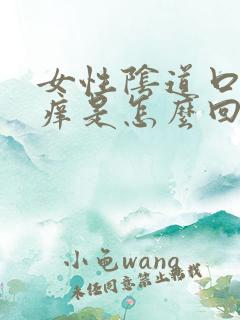 女性陰道口
痒是怎麼回
小龟wang
未经同意禁止搬载